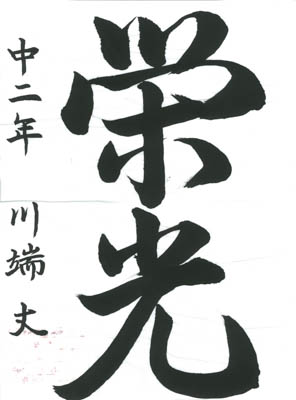 栄光
中二年 川端丈